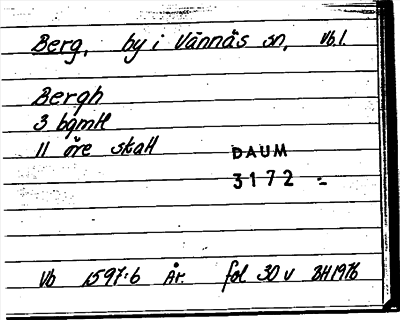 Berg, by i Vännäs sn, Vb.l.
Bergh
3 bgmtl
11 öre skatt
DAUM
3172 :-
Vb 1597:6 År. fol 30 v BH1976